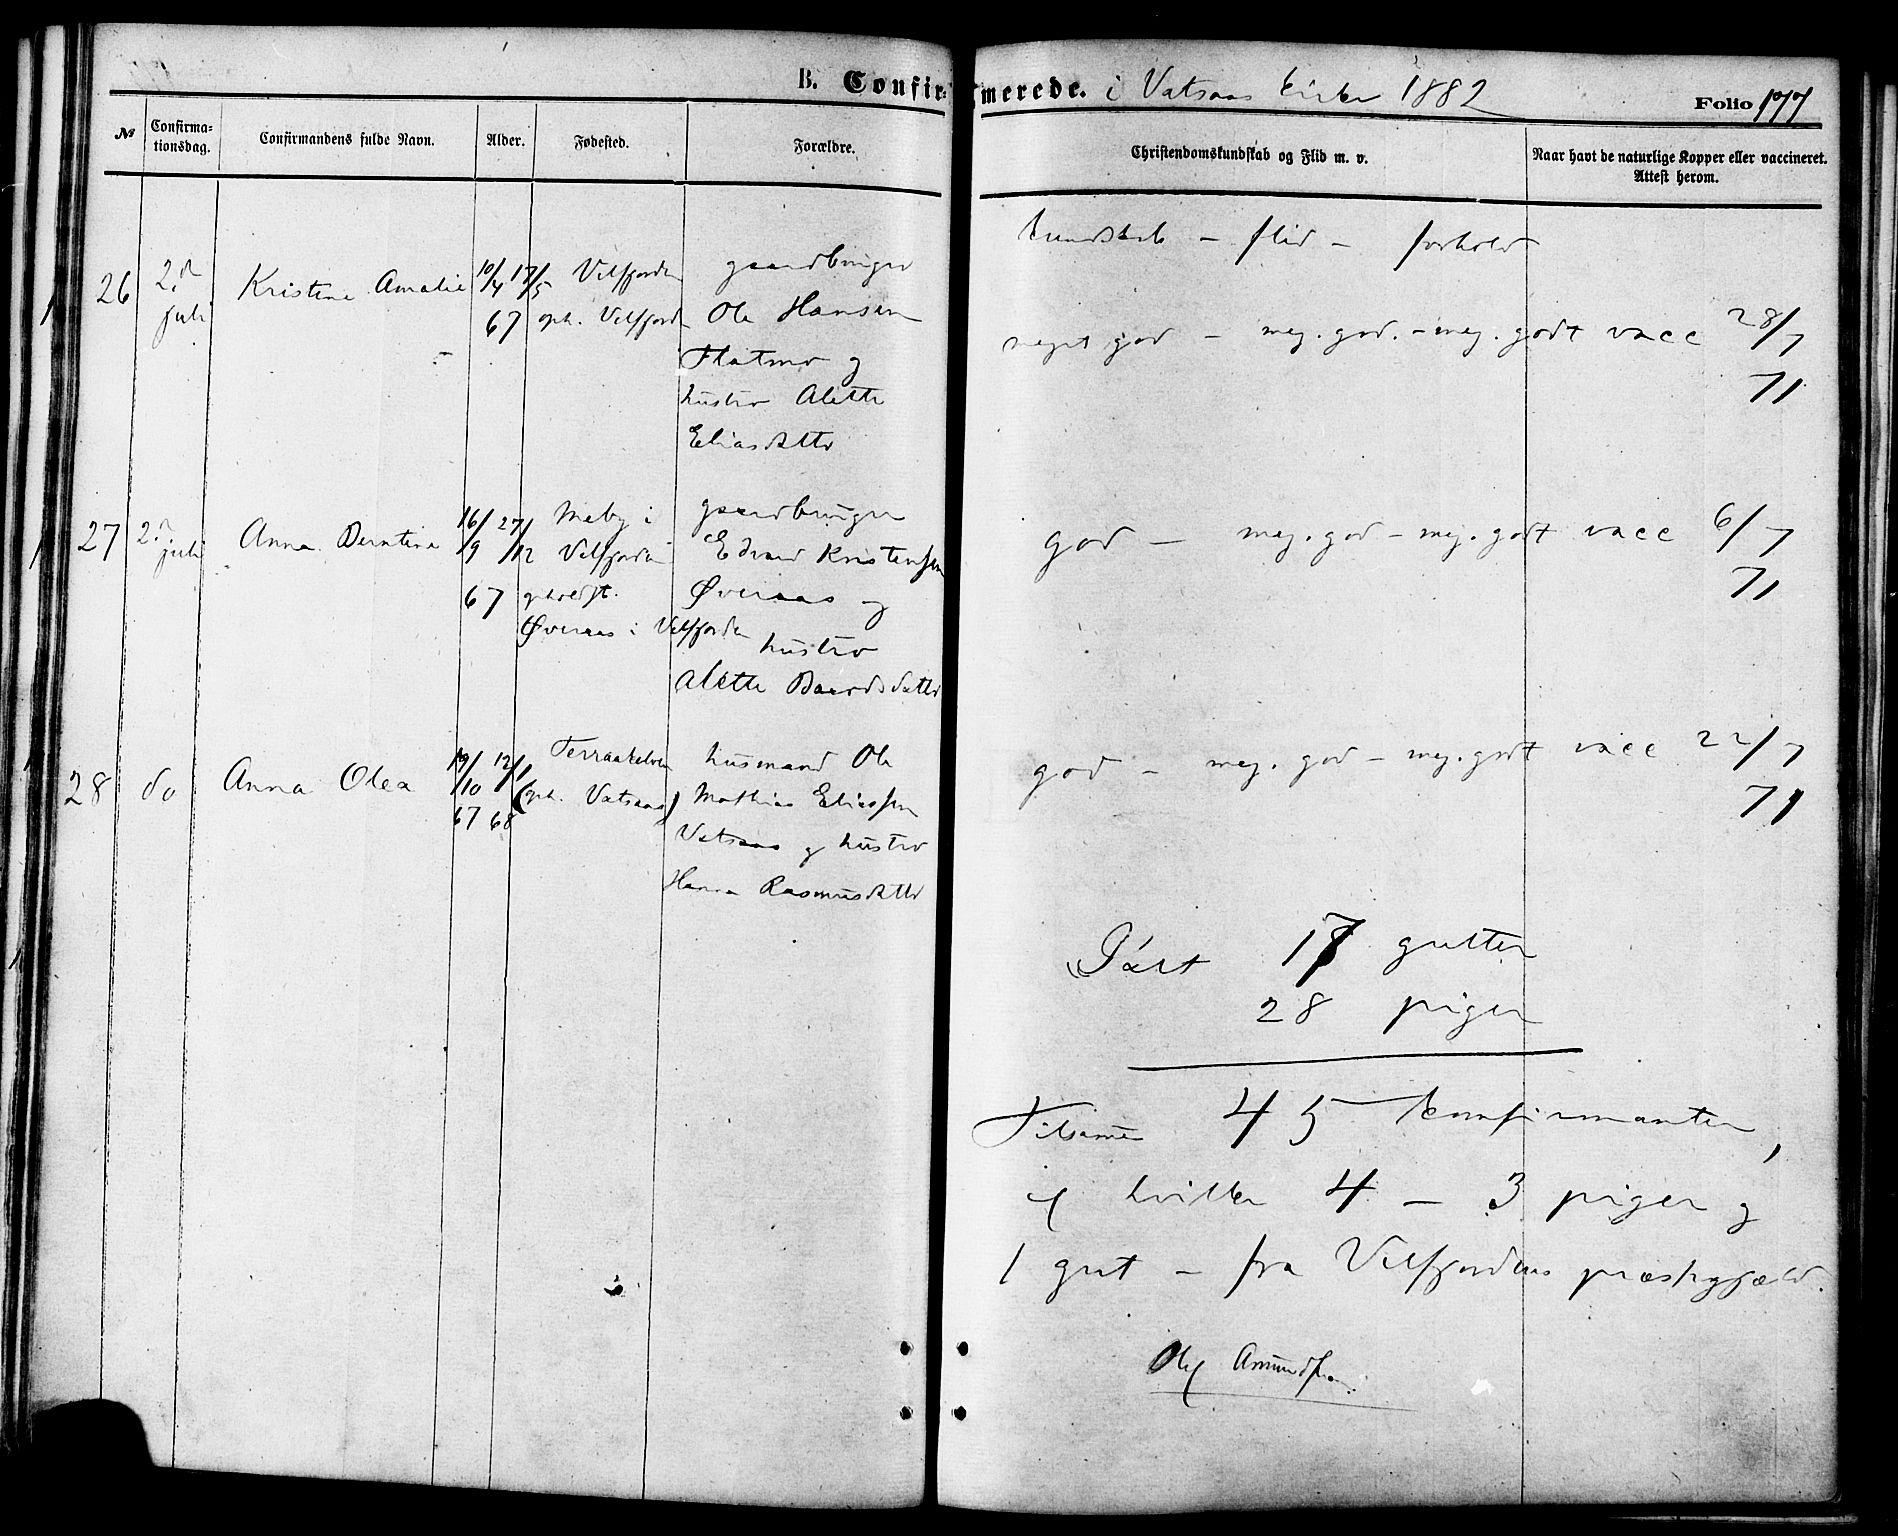 B. Confirmerede. i Vatsaas kirke 1882
Folio 177
№
Confirmationsdag.
Confirmandens fulde Navn.
Alder.
Fødested.
Forældre.
Christendomskundskab og Flid m. v.
Naar havt de naturlige Kopper eller vaccineret. Attest herom.
kundskab – flid – forhold
26
2den juli
Kristine Amalie
10/4 17/5
67
Velfjorden
oph. Velfjord
gaardbruger
Ole Hansen
Flatmo og
hustro Alette
Eliasdatter
meget god – meg. god. – meg. godt vacc 28/7
71
27
2den juli
Anna Berntine
16/9 27/12
67
Meby i
Velfjorden
opholdst.
Øveraas i Velfjorden
gaardbruger
Edvard Kristensen
Øveraas og
hustro
Alette Baardsdatter
god – meg. god – meg. godt vacc 6/7
71
28
do
Anna Olea
19/10 12/1
67 68
Terraakelven
(oph. Vatsaas)
husmand Ole
Mathias Eliassen
Vatsaas og hustro
Hanna Rasmusdatter
god – meg. god – meg. godt vacc 22/7
71
17 gutter
28 piger
Tilsammen 45 konfirmanter,
af hvilke 4 – 3 piger og
1 gut – fra Velfjordens præstegjæld.
Ole Amundsen